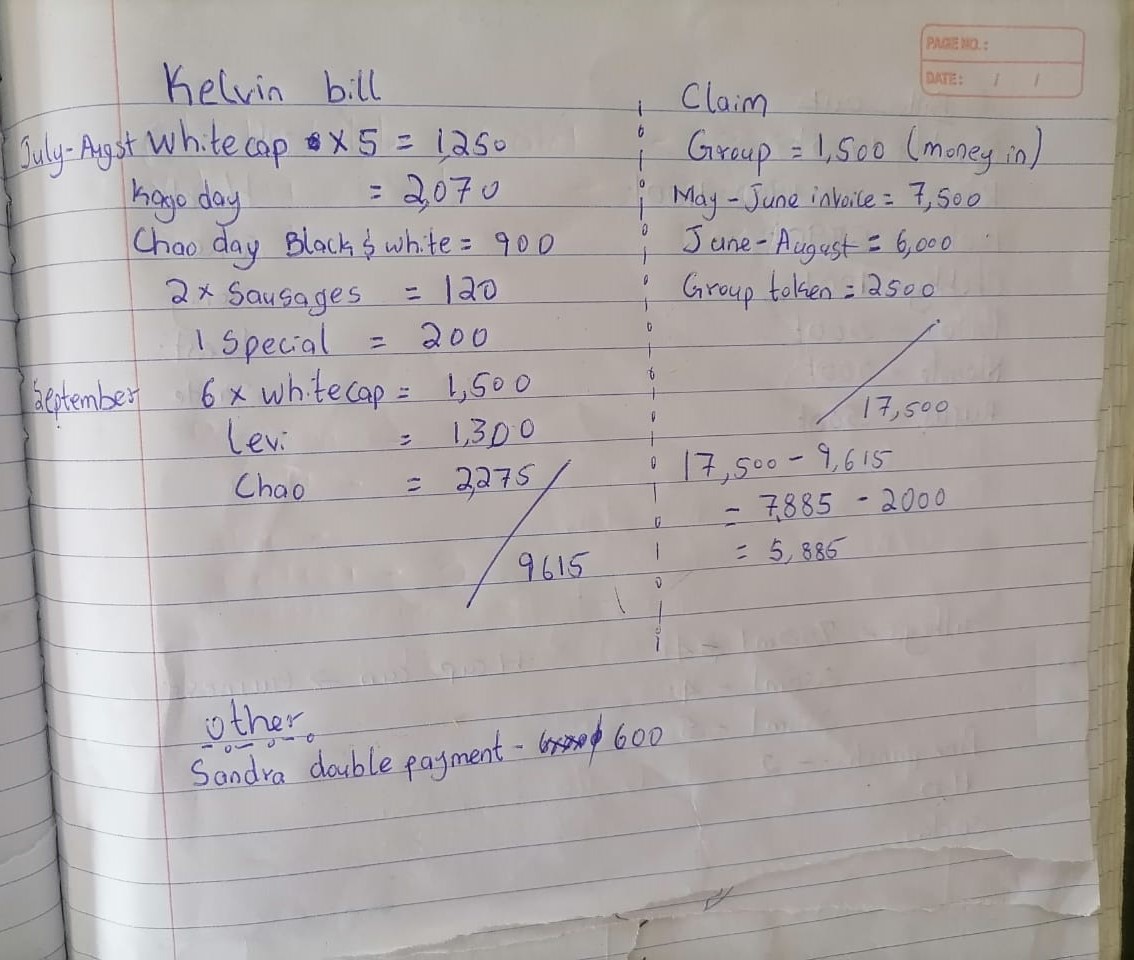 PAGE NO.:
DATE: / /
Kelvin bill
July-Augst White cap x 5 = 1,250
Kago day = 2,070
Chao day Black & white = 900
2 x Sausages = 120
1 Special = 200
September 6 x white cap = 1,500
Levi = 1,300
Chao = 2,275
9615
Claim
Group = 1,500 (money in)
May - June invoice = 7,500
June - August = 6,000
Group token = 2500
17,500
17,500 - 9,615
= 7,885 - 2000
= 5,885
Other
Sandra double payment - 600